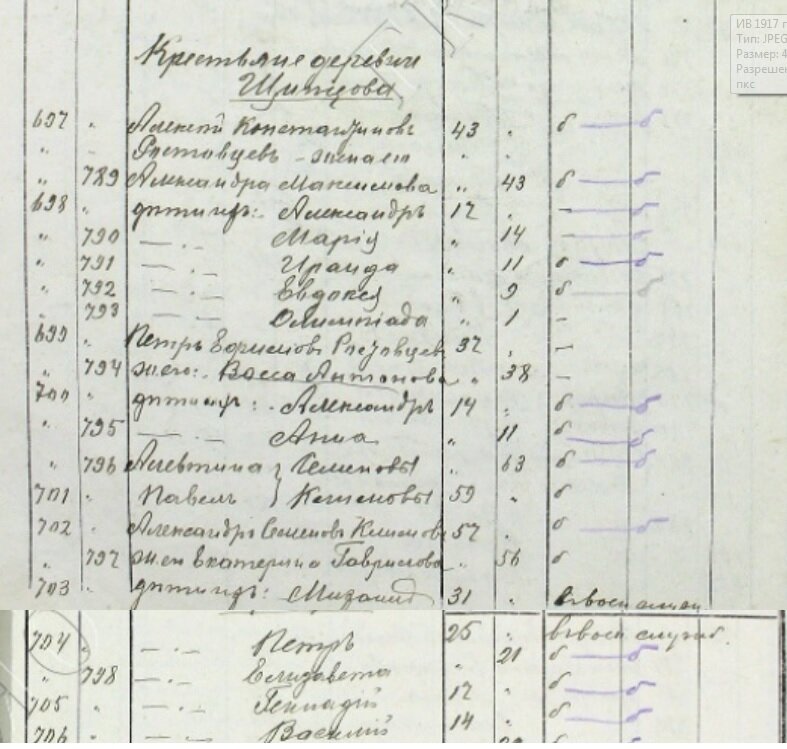 ИВ 1917 г
Тип: JPEG
Размер: 4
Разрешен
пкс
Крестьяне деревни
Шипцова
697 " Алексей Константиновъ 43 " б — б
" " Ростовцевъ - жена его " "
" 789 Александра Максимова " 43 б — б
698 " дети ихъ: Александръ 17 " — б
" 790 — " — Марія " 14 — б
" 791 — " — Ираида " 11 б — б
" 792 — " — Евдокся " 9 б — б
" 793 — " — Олимпіада " 1 —
699 " Петръ Ефимовъ Ростовцев 37 " —
" 794 ж. его: Васса Антонова " 38 —
700 " дети ихъ: Александръ 14 " б — б
" 795 — " — Анна " 11 б — б
" 796 Алевтина } Семеновы " 63 б — б
701 " Павелъ } 59 " б
702 " Александръ Семеновъ 57 " б — б
" 797 жен Екатерина Гаврилова " 56 б
703 " дети ихъ: Михаилъ 31 " в воен служ
704 " — " — Петръ 25 " в воен служб.
" 798 — " — Елизавета " 21 б — б
705 — " — Геннадій 17 " б — б
706 — " — Василій 14 " б — б